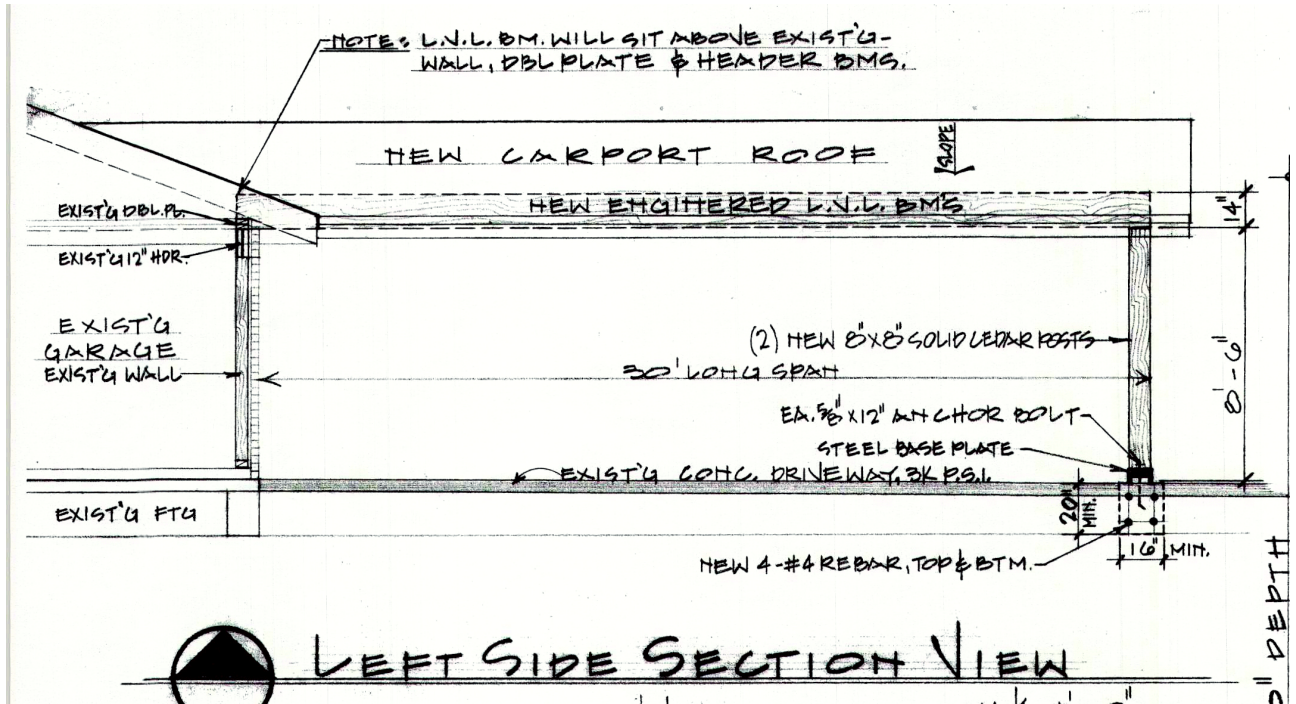 NOTE: L.V.L. BM. WILL SIT ABOVE EXIST'G
WALL, DBL PLATE & HEADER BMS.
NEW CARPORT ROOF
SLOPE
EXIST'G DBL. PL.
NEW ENGINERED L.V.L. BM'S
14"
EXIST'G 12" HDR.
EXIST'G
GARAGE
EXIST'G WALL
(2) NEW 8"X8" SOLID CEDAR POSTS
30' LONG SPAN
8'-6"
EA. 5/8" X 12" ANCHOR BOLT
STEEL BASE PLATE
EXIST'G CONC. DRIVEWAY, 3K P.S.I.
EXIST'G FTG
20"
MIN.
16" MIN.
NEW 4-#4 REBAR, TOP & BTM.
LEFT SIDE SECTION VIEW
DEPTH